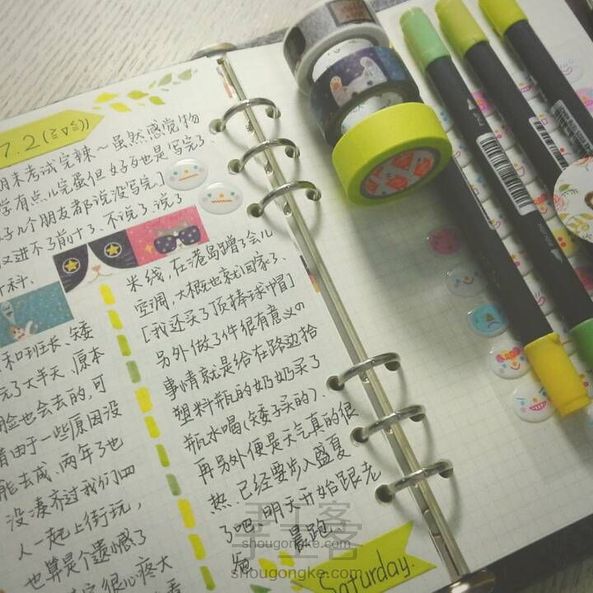 7.2(三日)
期末考试完辣～虽然感觉物
学有点儿完蛋但好歹也是写完了
几个朋友都说没写完]
又进不了前十了.不说了.说了
科.
和班长、矮
完了大半天、原本
脸也会去的,可
由于一些原因没
能去成、两年了也
没凑齐过我们四
人一起上街玩,
也算是个遗憾了
很心疼大
米线,在港岛蹭了会儿
空调,大概也就回家了.
[我还买了顶棒球帽]
另外做了件很有意义の
事情就是给在路边拾
塑料瓶的奶奶买了
瓶水喝(矮子买的).
再另外便是天气真的很
热.已经要步入盛夏
了吧.明天开始跟老
晨跑.
Saturday.
手工客
shougongke.com
shougongke.com